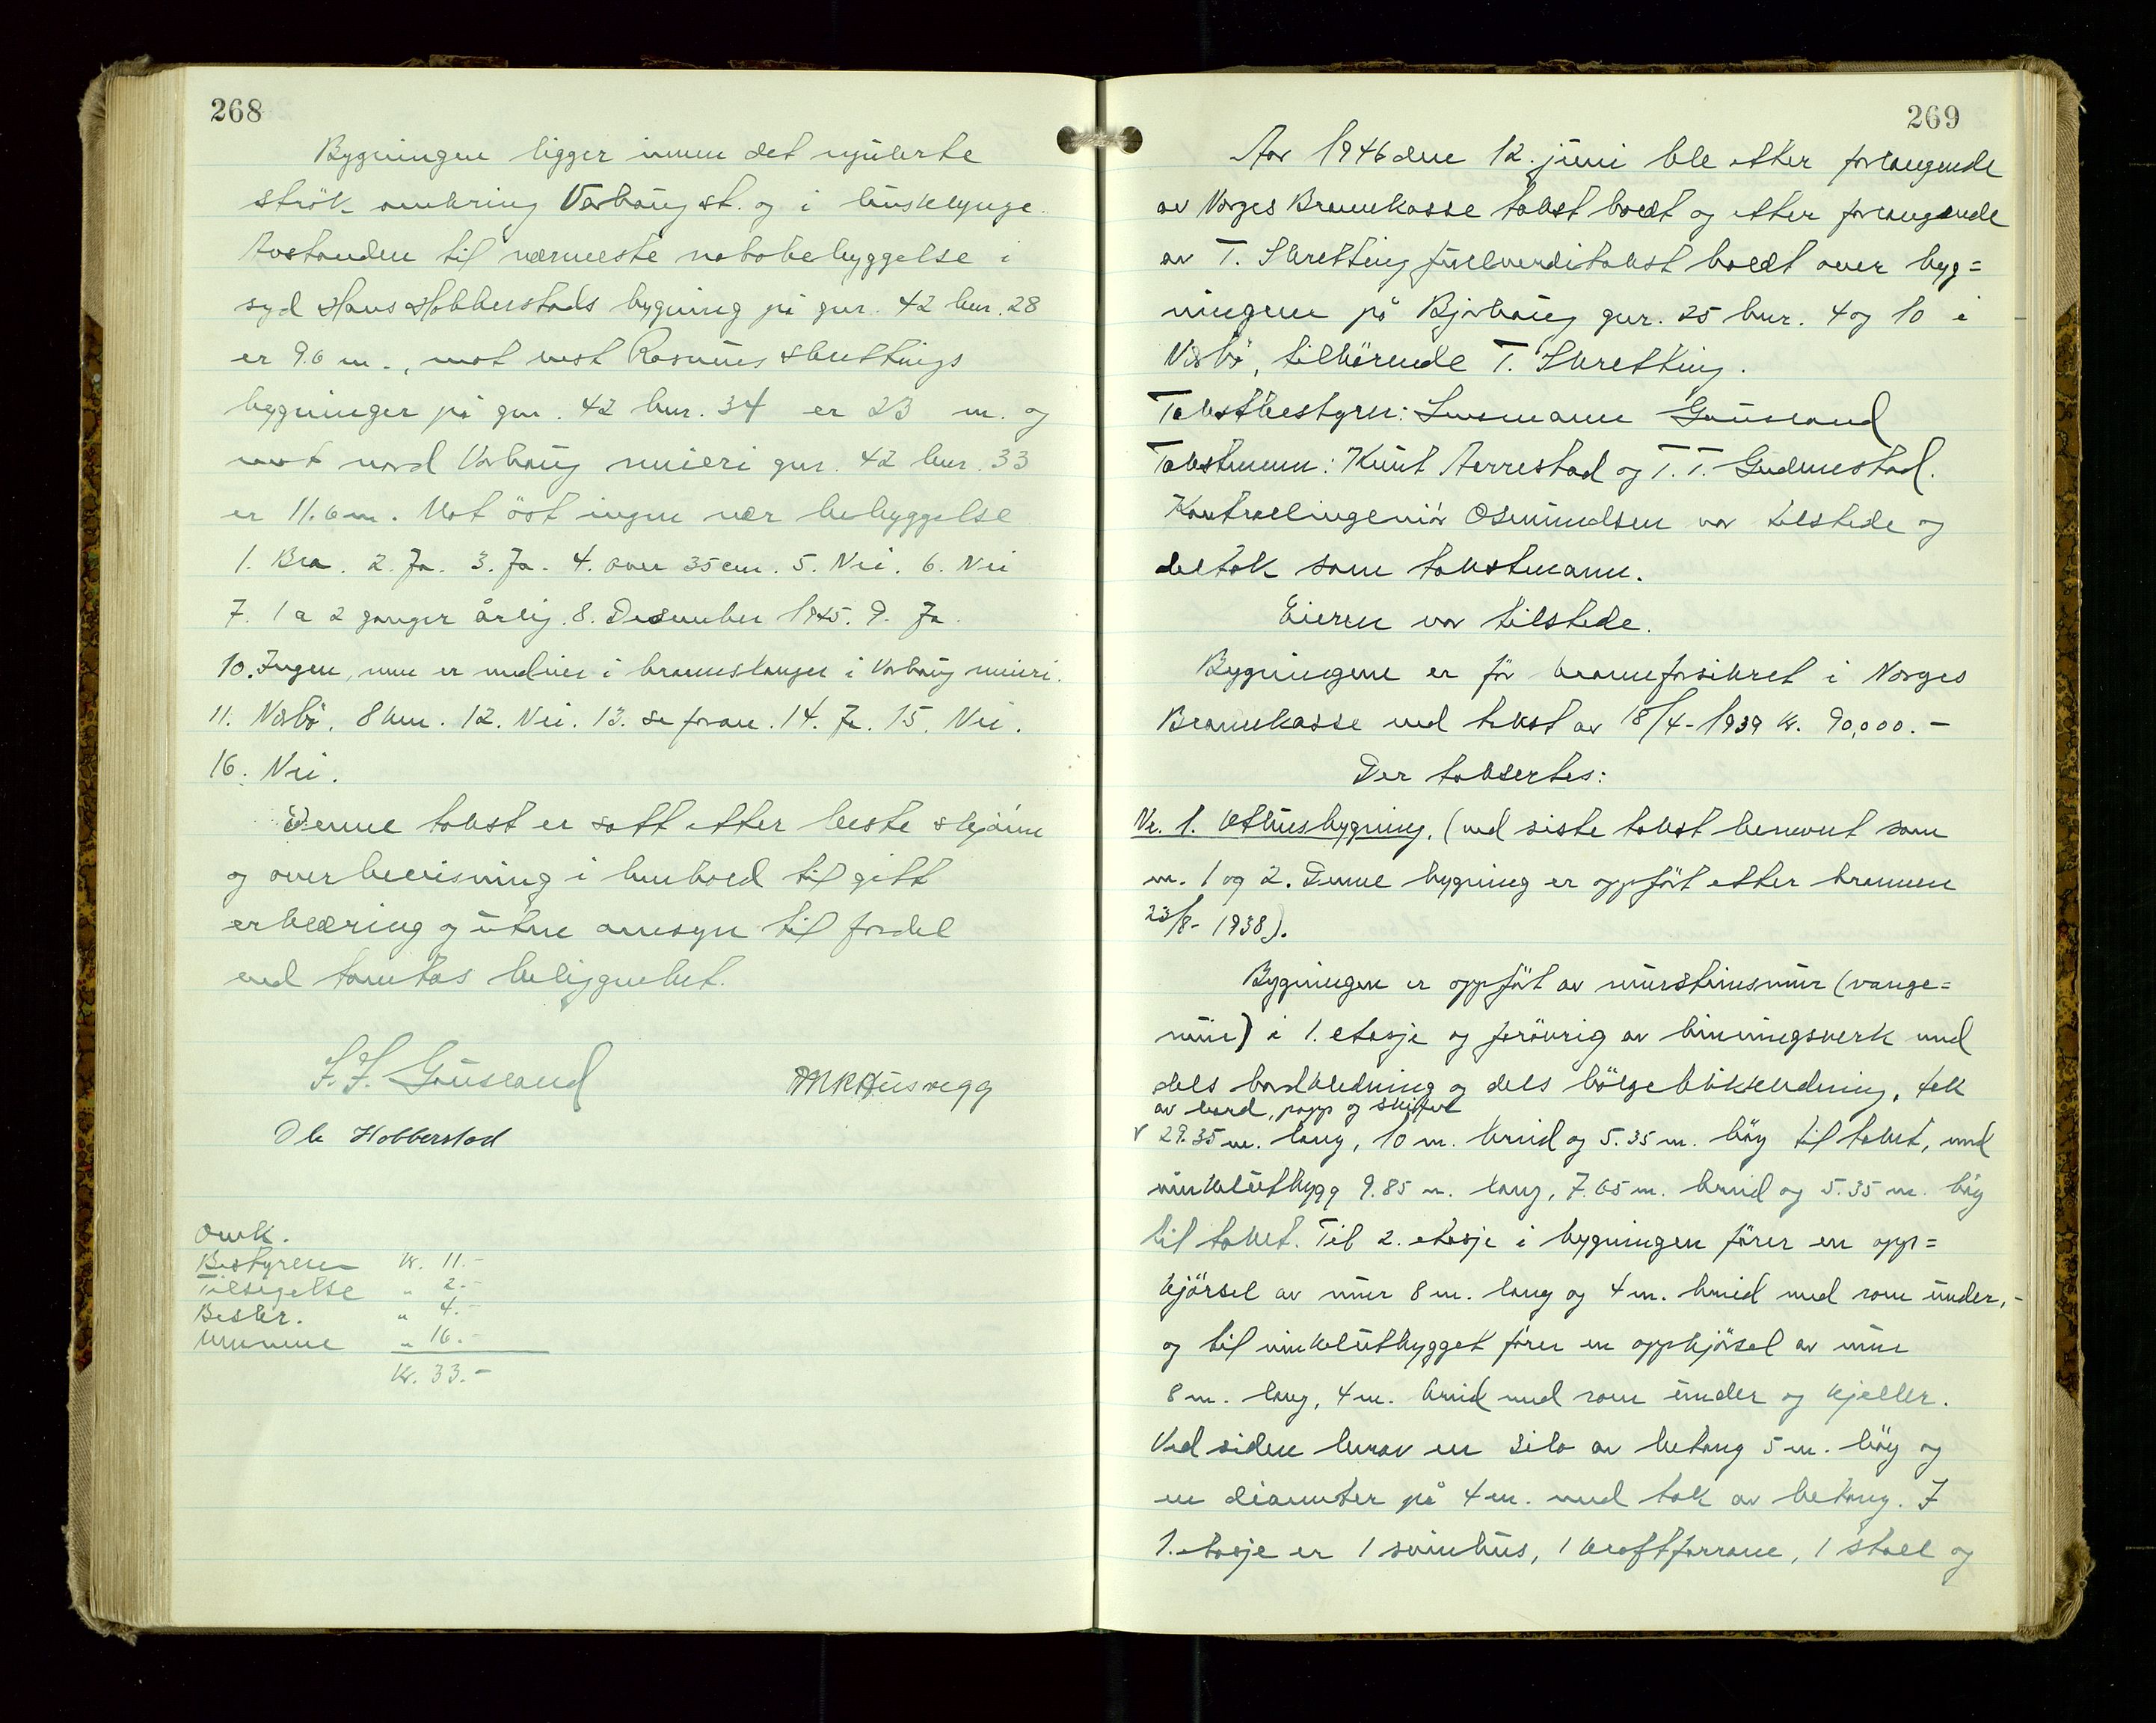 268
Bygningen ligger innen det regulerte
strök omkring Varhaug st. og i husklynge.
Avstanden til nærmeste nabobebyggelse i
syd Hans Hobberstads bygning på gnr. 42 bnr. 28
er 9.6 m., mot vest Rasmus Skrettings
bygninger på gnr. 42 bnr. 34 er 23 m. og
mot nord Varhaug meieri gnr. 42 bnr. 33
er 11.6 m. Mot öst ingen nær bebyggelse
1. Bra. 2. Ja. 3. Ja. 4. over 35 cm. 5. Nei. 6. Nei
7. 1 a 2 ganger årlig. 8. Desember 1945. 9. Ja.
10. Ingen, men er medeier i brannslanger i Varhaug meieri.
11. Nærbö. 8 km. 12. Nei. 13. se foran. 14. Ja. 15. Nei.
16. Nei.
Denne takst er satt etter beste skjönn
og overbevisning i henhold til gitt
erklæring og uten omsyn til fordel
ved tomtas beliggenhet.
J. J. Gausland
Ole Hobberstad
Omk.
Bestyreren kr. 11.-
Tilsigelse " 2.-
Beskr. " 4.-
Mennene " 16.-
Kr. 33.-
269
Aar 1946 den 12. juni ble etter forlangende
av Norges Brannkasse takst holdt og etter forlangende
av T. Skretting fullverditakst holdt over byg=
ningene på Bjorhaug gnr. 25 bnr. 4 og 10 i
Nærbö, tilhörende T. Skretting.
Takstbestyrer: Lensmann Gausland
Takstmenn: Knut Aarrestad og T. T. Gudmestad.
Kontrollingeniör Osmundsen var tilstede og
deltok som takstmann.
Eieren var tilstede.
Bygningene er för brannforsikret i Norges
Brannkasse ved takst av 18/4-1939 kr. 90,000.-
Der takseres:
Nr. 1. Uthusbygning. (ved siste takst benevnt som
nr. 1 og 2. Denne bygning er oppfört etter brannen
23/8-1938).
Bygningen er oppfört av murstensmur (vange=
mur) i 1. etasje og forövrig av binningsverk med
dels bordkledning og dels bölgeblikkledning, tak
av bord, papp og skifer
v 29.35 m. lang, 10 m. breid og 5.35 m. höy til taket, med
vinkelutbygg 9.85 m. lang, 7.65 m. breid og 5.35 m. höy
til taket. Til 2. etasje i bygningen förer en opp=
kjörsel av mur 8 m. lang og 4 m. breid med rom under,-
og til vinkelutbygget förer en oppkjörsel av mur
8 m. lang, 4 m. breid med rom under og kjeller.
Ved siden herav en silo av betong 5 m. höy og
en diameter på 4 m. med tak av betong. I
1. etasje er 1 svinhus, 1 kraftforrom, 1 stall og